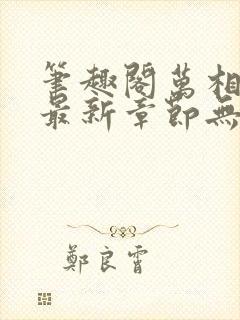 筆趣閣萬相
最新章節無
鄭良霄